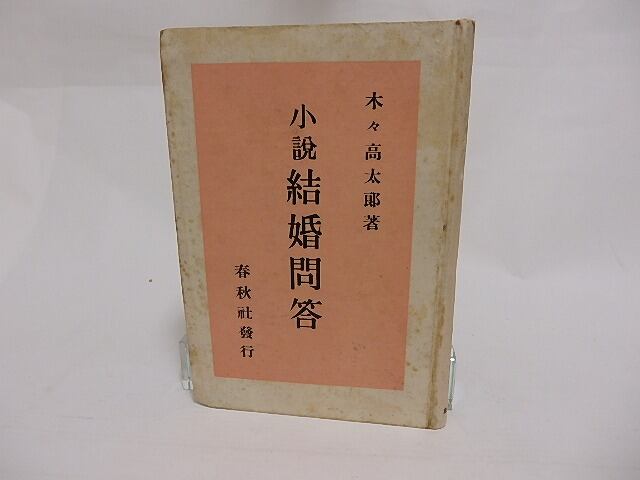 木々高太郎著
小說結婚問答
春秋社發行